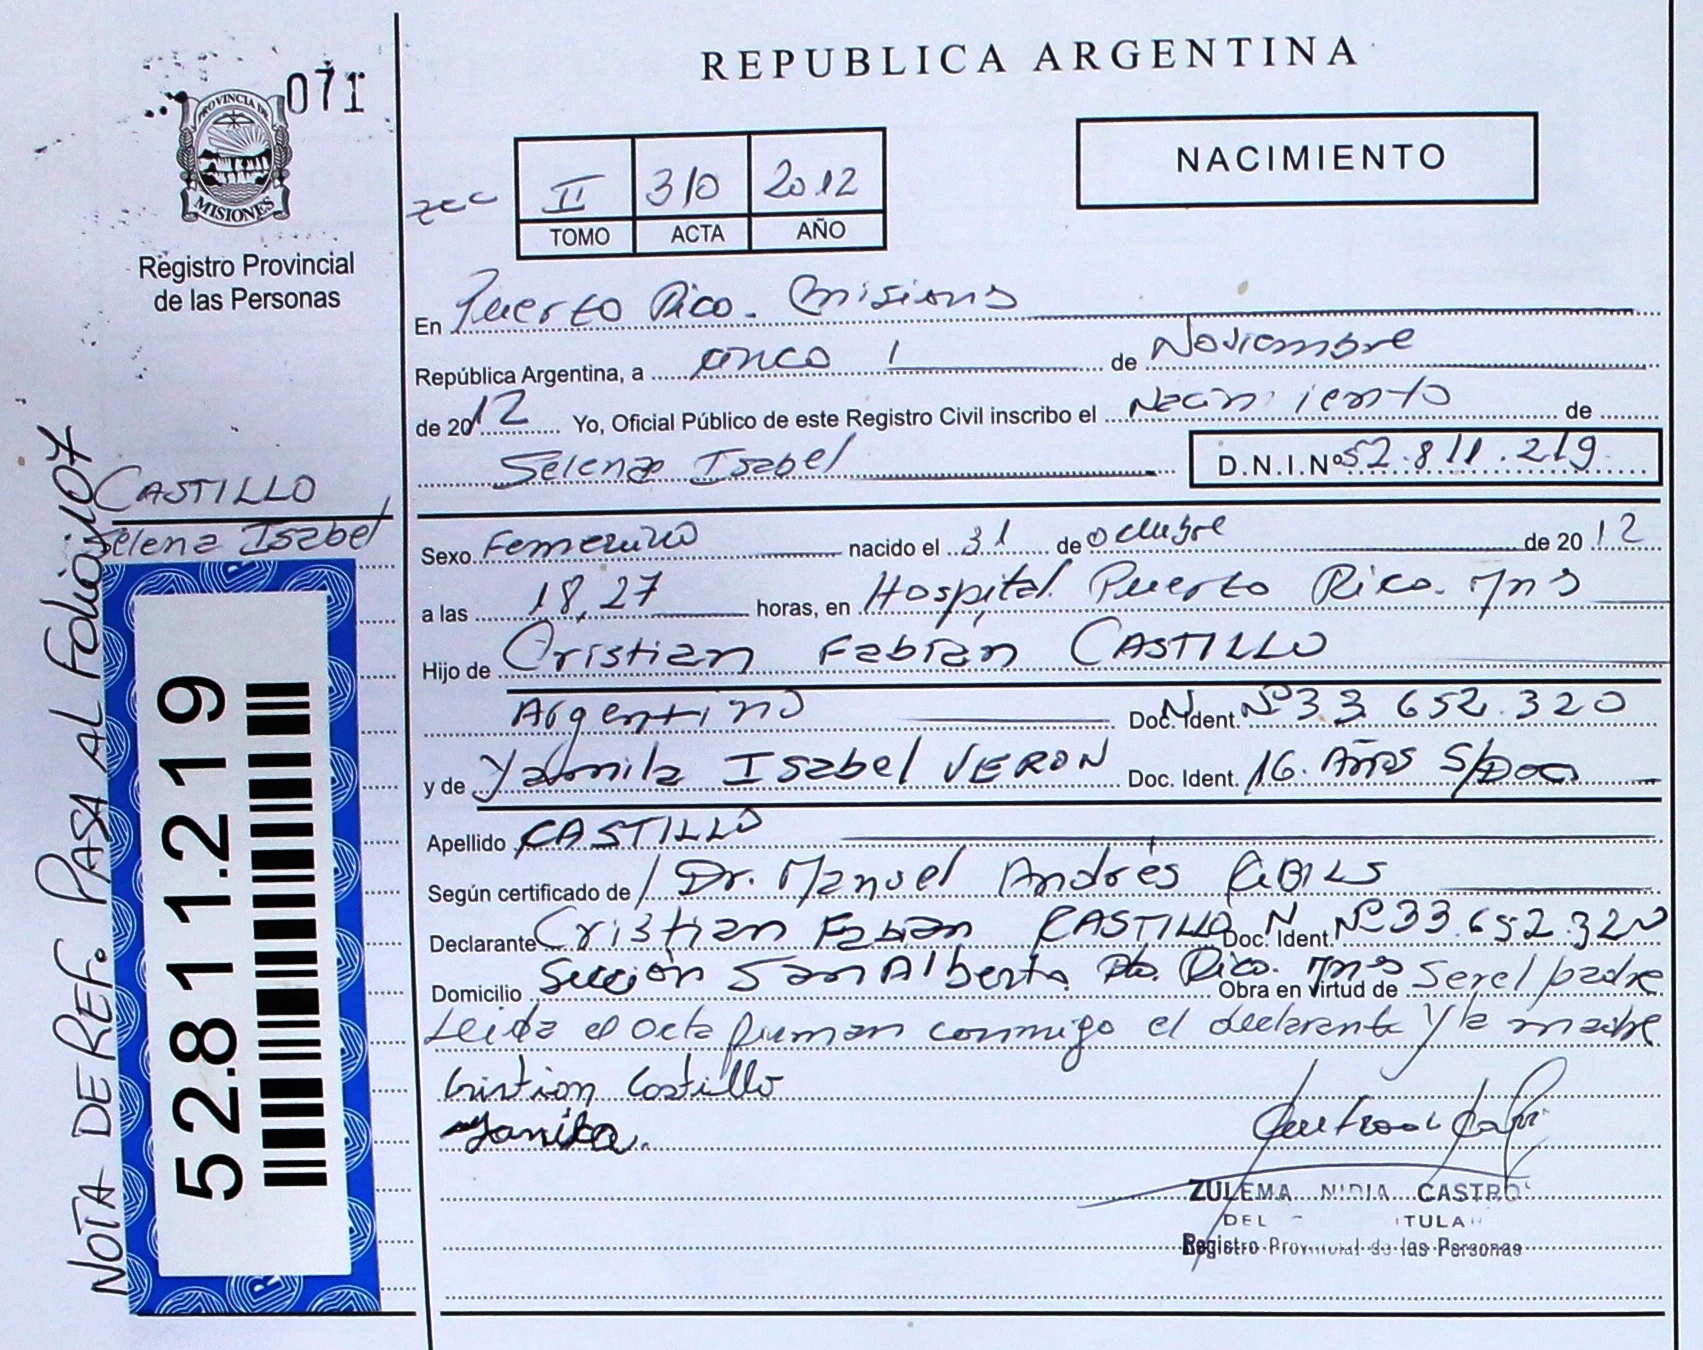 071
PROVINCIA DE
MISIONES
Registro Provincial
de las Personas
REPUBLICA ARGENTINA
NACIMIENTO
II 310 2012
TOMO ACTA AÑO
En Puerto Rico. Misiones
República Argentina, a cinco de Noviembre
de 2012 Yo, Oficial Público de este Registro Civil inscribo el Nacimiento de
Selena Isabel D.N.I. Nº 52.811.219
CASTILLO
Selena Isabel
Sexo Femenino nacido el 31 de octubre de 2012
a las 18,27 horas, en Hospital Puerto Rico. Mns
Hijo de Cristian Fabián CASTILLO
Argentino Doc. Ident. N Nº 33 652.320
y de Yamila Isabel VERON Doc. Ident. 16 Años S/Doc
Apellido CASTILLO
Según certificado de Dr. Manuel Andrés
Declarante Cristian Fabian CASTILLO Doc. Ident. N Nº 33.652.320
Domicilio Sección San Alberto Pto. Rico. Mns Obra en virtud de Ser el padre
Leida el acta firman conmigo el declarante y la madre
Cristian Castillo
Yamila.
ZULEMA NIDIA CASTRO
DEL TITULAR
Registro Provincial de las Personas
NOTA DE REF. PASA AL Folio 107
52.811.219